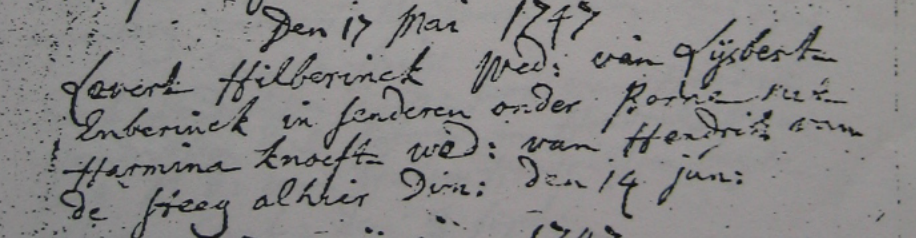 Den 17 Mai 1747
Lovert Hilberinck Wed: van Lijsbert
Enberinck in senderen onder Borne met
Harmina knoeft wed: van Hendrik van
de steeg alhier Dim: den 14 jun: